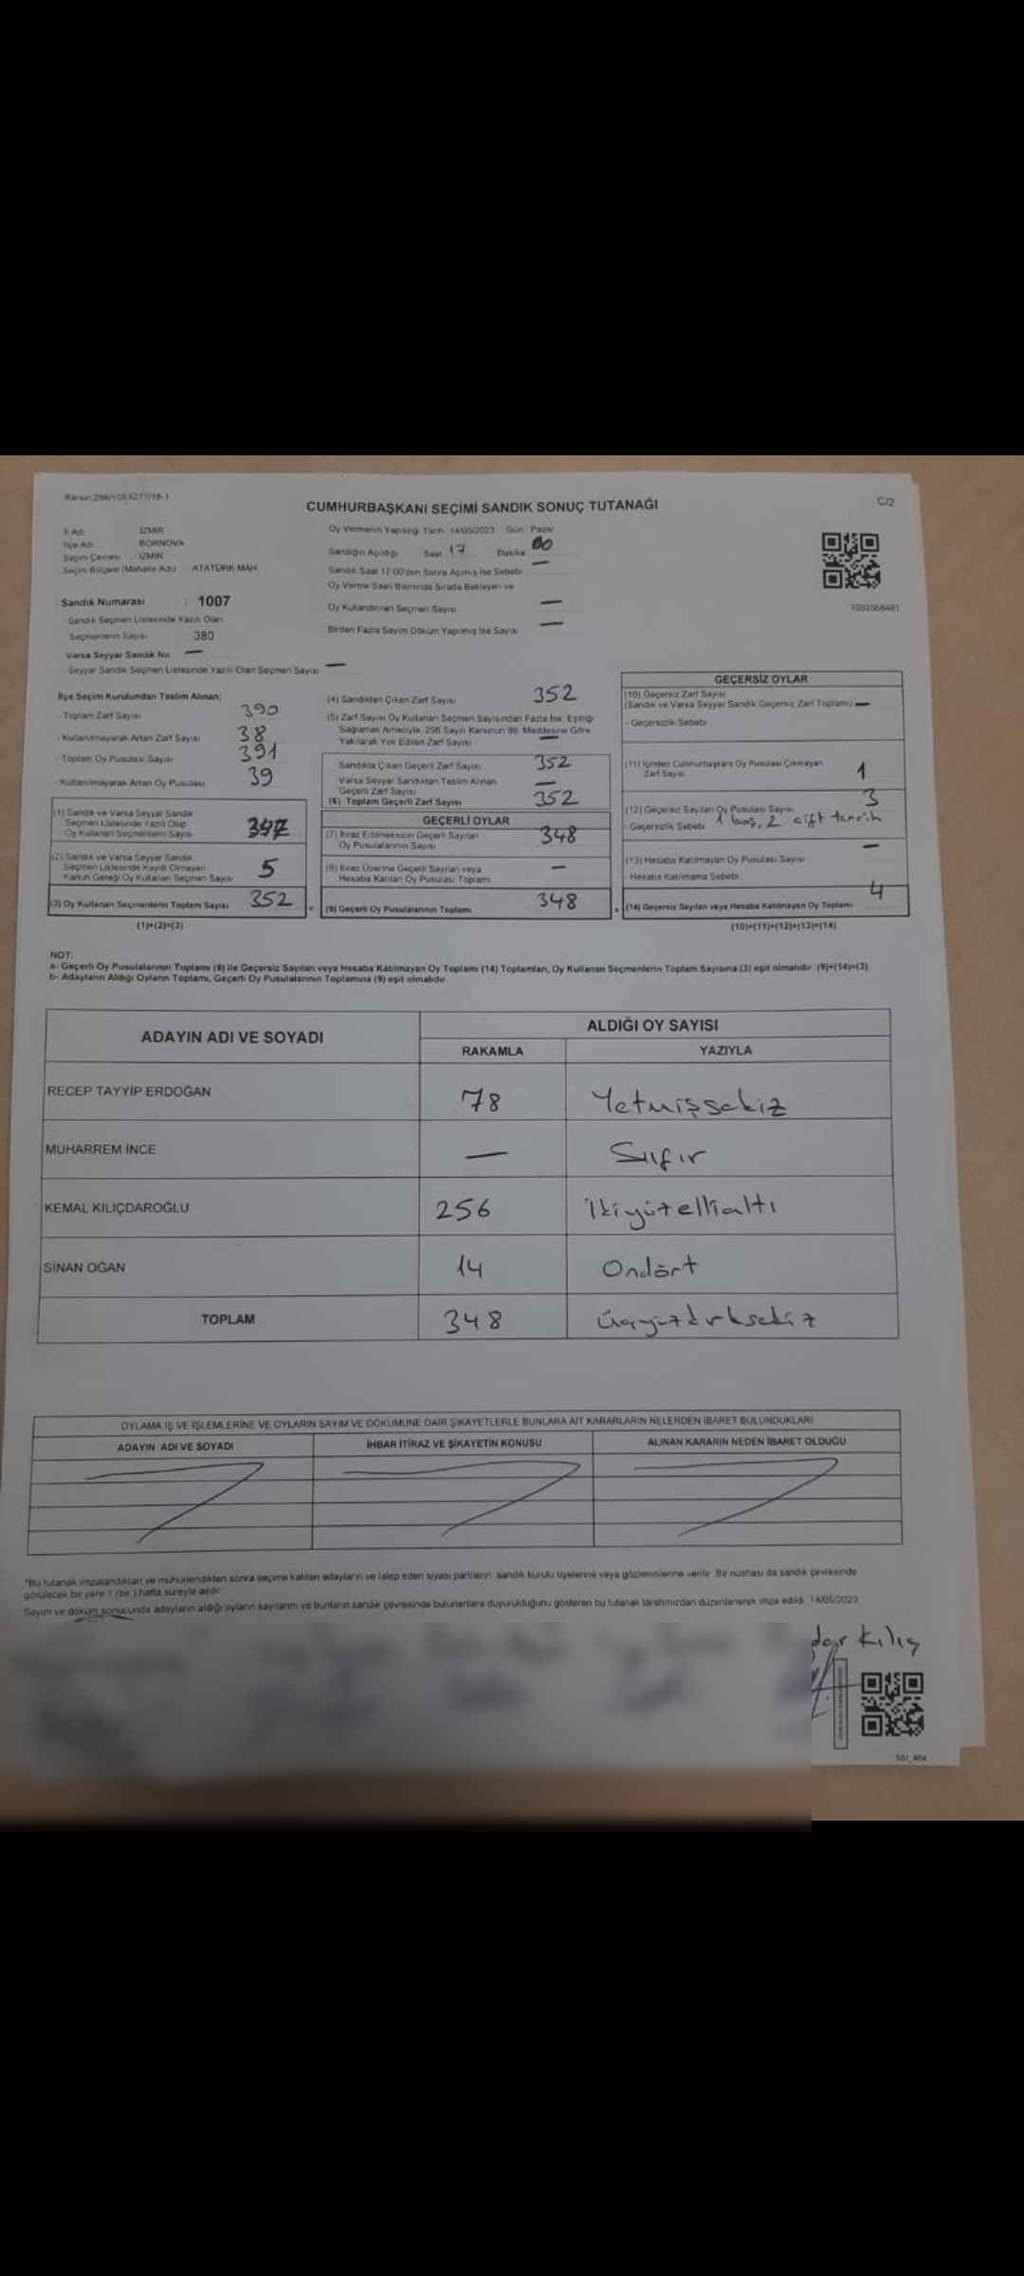 CUMHURBAŞKANI SEÇİMİ SANDIK SONUÇ TUTANAĞI
C/2
İl Adı İZMİR
İlçe Adı BORNOVA
Seçim Çevresi İZMİR
Seçim Bölgesi (Mahalle Adı) ATATÜRK MAH
Sandık Numarası : 1007
Sandık Seçmen Listesinde Yazılı Olan
Seçmenlerin Sayısı 380
Varsa Seyyar Sandık No —
Seyyar Sandık Seçmen Listesinde Yazılı Olan Seçmen Sayısı —
Oy Vermenin Yapıldığı Tarih 14/05/2023 Gün Pazar
Sandığın Açıldığı Saat 17 Dakika 00
Sandık Saat 17:00'den Sonra Açılmış İse Sebebi —
Oy Verme Saati Bitiminde Sırada Bekleyen ve
Oy Kullandırılan Seçmen Sayısı —
Birden Fazla Sayım Döküm Yapılmış İse Sayısı —
İlçe Seçim Kurulundan Teslim Alınan:
- Toplam Zarf Sayısı 390
- Kullanılmayarak Artan Zarf Sayısı 38
- Toplam Oy Pusulası Sayısı 391
- Kullanılmayarak Artan Oy Pusulası 39
(1) Sandık ve Varsa Seyyar Sandık
Seçmen Listesinde Yazılı Olup
Oy Kullanan Seçmenlerin Sayısı 347
(2) Sandık ve Varsa Seyyar Sandık
Seçmen Listesinde Kayıtlı Olmayan
Kanun Gereği Oy Kullanan Seçmen Sayısı 5
(3) Oy Kullanan Seçmenlerin Toplam Sayısı 352
(1)+(2)=(3)
(4) Sandıktan Çıkan Zarf Sayısı 352
(5) Zarf Sayısı Oy Kullanan Seçmen Sayısından Fazla İse, Eşitliği
Sağlamak Amacıyla, 298 Sayılı Kanunun 98. Maddesine Göre
Yakılarak Yok Edilen Zarf Sayısı —
Sandıkta Çıkan Geçerli Zarf Sayısı 352
Varsa Seyyar Sandıktan Teslim Alınan
Geçerli Zarf Sayısı —
(6) Toplam Geçerli Zarf Sayısı 352
GEÇERLİ OYLAR
(7) İtiraz Edilmeksizin Geçerli Sayılan
Oy Pusulalarının Sayısı 348
(8) İtiraz Üzerine Geçerli Sayılan veya
Hesaba Katılan Oy Pusulası Toplamı —
(9) Geçerli Oy Pusulalarının Toplamı 348
GEÇERSİZ OYLAR
(10) Geçersiz Zarf Sayısı
(Sandık ve Varsa Seyyar Sandık Geçersiz Zarf Toplamı) —
- Geçersizlik Sebebi
(11) İçinden Cumhurbaşkanı Oy Pusulası Çıkmayan
Zarf Sayısı 1
(12) Geçersiz Sayılan Oy Pusulası Sayısı 3
- Geçersizlik Sebebi 1 boş, 2 çift tercih
(13) Hesaba Katılmayan Oy Pusulası Sayısı —
- Hesaba Katılmama Sebebi
(14) Geçersiz Sayılan veya Hesaba Katılmayan Oy Toplamı 4
(10)+(11)+(12)+(13)=(14)
NOT:
a- Geçerli Oy Pusulalarının Toplamı (9) ile Geçersiz Sayılan veya Hesaba Katılmayan Oy Toplamı (14) Toplamları, Oy Kullanan Seçmenlerin Toplam Sayısına (3) eşit olmalıdır. (9)+(14)=(3)
b- Adayların Aldığı Oyların Toplamı, Geçerli Oy Pusulalarının Toplamına (9) eşit olmalıdır.
ADAYIN ADI VE SOYADI ALDIĞI OY SAYISI
RAKAMLA YAZIYLA
RECEP TAYYİP ERDOĞAN 78 Yetmişsekiz
MUHARREM İNCE — Sıfır
KEMAL KILIÇDAROĞLU 256 İkiyüzellialtı
SİNAN OĞAN 14 Ondört
TOPLAM 348 Üçyüzkırksekiz
OYLAMA İŞ VE İŞLEMLERİNE VE OYLARIN SAYIM VE DÖKÜMÜNE DAİR ŞİKAYETLERLE BUNLARA AİT KARARLARIN NELERDEN İBARET BULUNDUKLARI
ADAYIN ADI VE SOYADI İHBAR İTİRAZ VE ŞİKAYETİN KONUSU ALINAN KARARIN NEDEN İBARET OLDUĞU
*Bu tutanak imzalandıktan ve mühürlendikten sonra seçime katılan adayların ve talep eden siyasi partilerin sandık kurulu üyelerine veya gözlemcilerine verilir. Bir nüshası da sandık çevresinde
görülecek bir yere 1 (bir) hafta süreyle asılır.
Sayım ve döküm sonucunda adayların aldığı oyların sayılarını ve bunların sandık çevresinde bulunanlara duyurulduğunu gösteren bu tutanak tarafımızdan düzenlenerek imza edildi. 14/05/2023
dar Kılıç